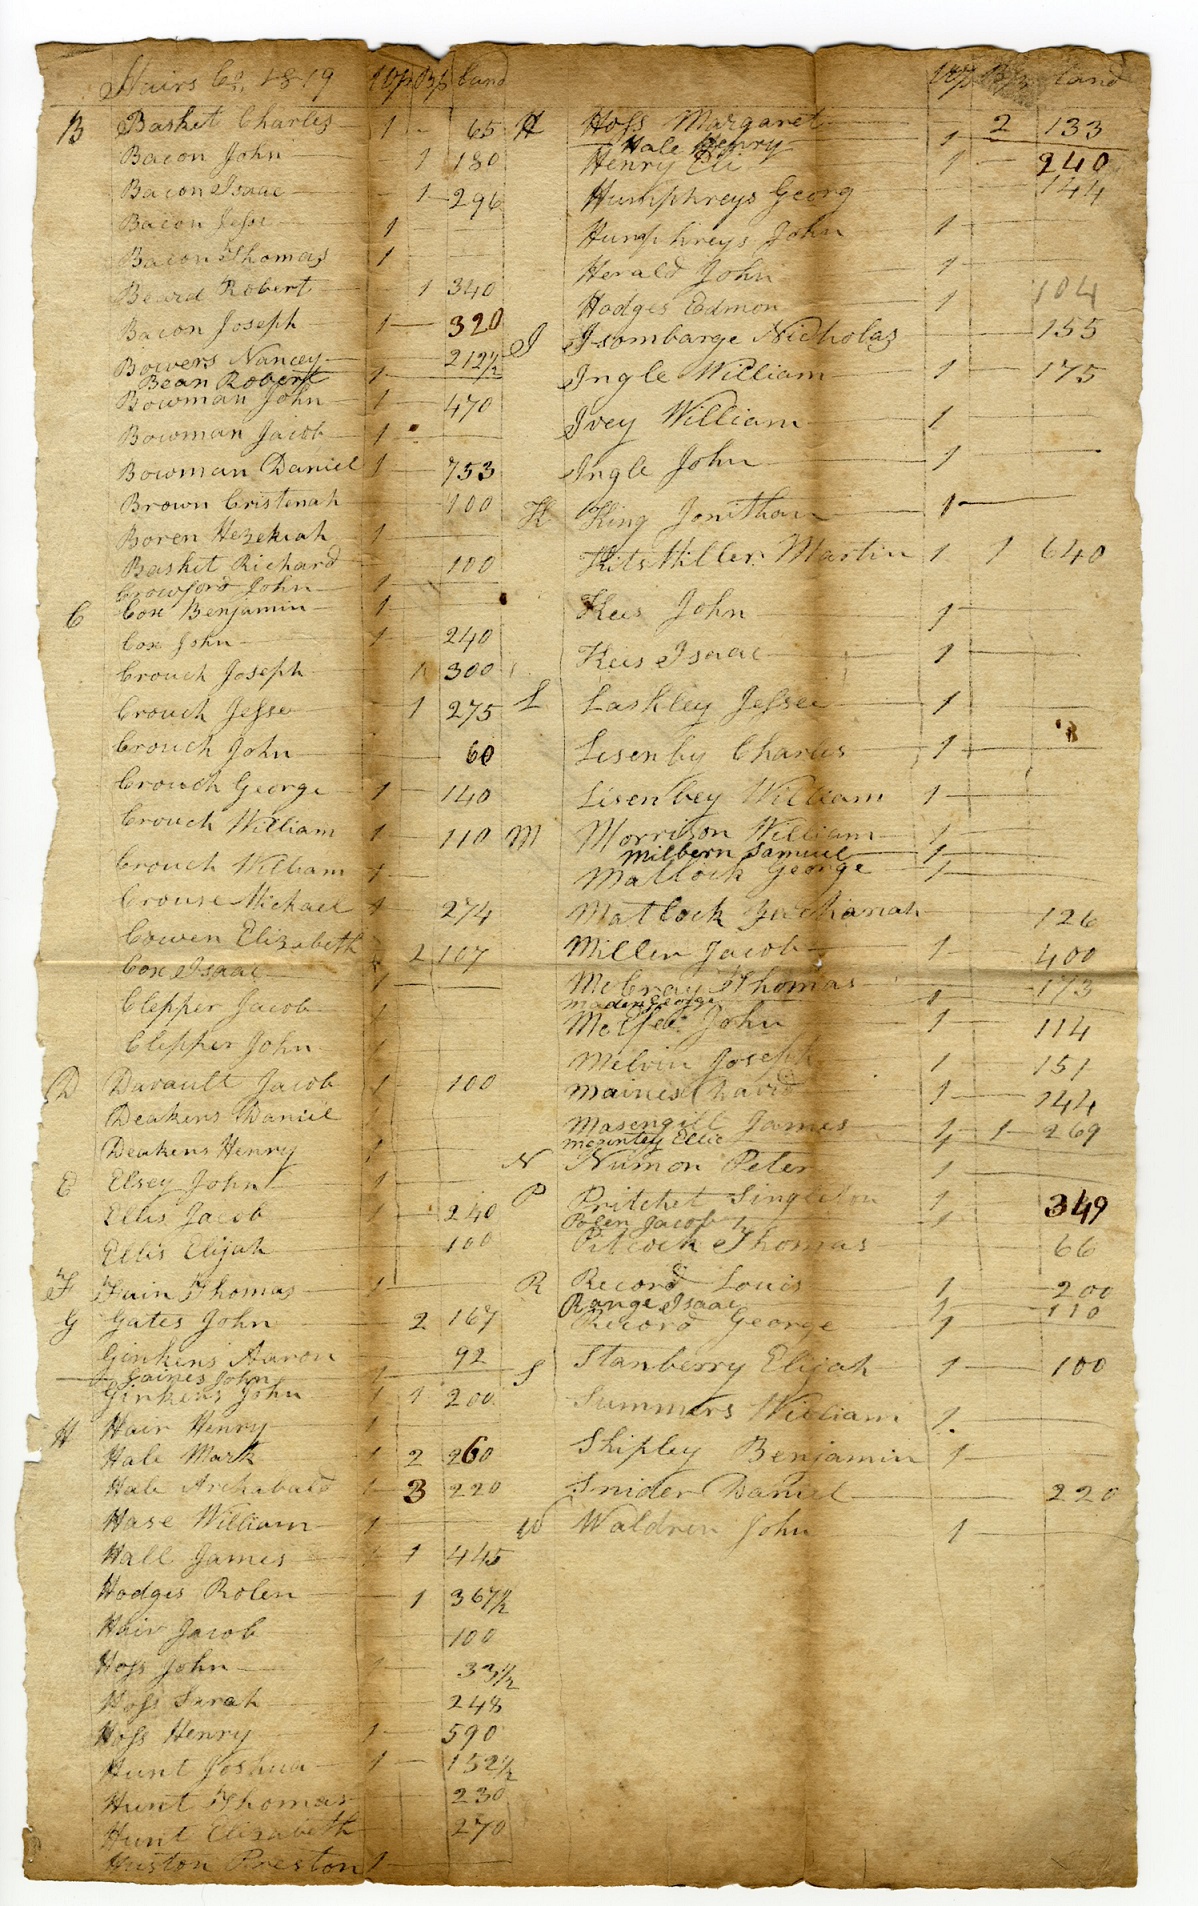 Hairs Co. 1819 Wp Bp Land
B Basket Charles 1 - 65
Bacon John 1 180
Bacon Isaac 1 296
Bacon Jesse 1
Bacon Thomas 1
Beard Robert 1 340
Bacon Joseph 1 320
Bowers Nancey 212 1/2
Bean Robert 1
Bowman John 1 470
Bowman Jacob 1
Bowman Daniel 1 753
Brown Cristenah 100
Boren Hezekiah 1
Basket Richard 100
Crowford John 1
C Cox Benjamin 1
Cox John 1 240
Crouch Joseph 1 300
Crouch Jesse 1 275
Crouch John 60
Crouch George 1 140
Crouch William 1 110
Crouch William 1
Crouse Michael 1 274
Cowen Elizabeth 2 107
Cox Isaac 1
Clepper Jacob 1
Clepper John 1
D Davault Jacob 1 100
Deakens Daniel 1
Deakens Henry 1
E Elsey John 1
Ellis Jacob 1 240
Ellis Elijah 100
F Fain Thomas 1
G Gates John 2 167
Ginkens Aaron 92
Gaines John 1
Ginkens John 1 1 200
H Hair Henry 1
Hale Mark 1 2 260
Hale Archabald 1 3 220
Hase William 1
Hall James 1 1 445
Hodges Rolen 1 367 1/2
Hair Jacob 100
Hoss John 1 33 1/2
Hoss Sarah 248
Hoss Henry 1 590
Hunt Joshua 1 152 1/2
Hunt Thomas 230
Hunt Elizabeth 270
Huston Preston 1
Wp Land
H Hoss Margaret 2 133
Hale Henry 1
Henry Eli 1 240
Humphreys Georg 144
Humphreys John 1
Herald John 1
Hodges Edmon 1 104
I Isombarge Nicholas 155
Ingle William 1 175
Ivey William 1
Ingle John 1
K King Jonithan 1
KitsMiller Martin 1 1 640
Kees John 1
Kees Isaac 1
L Laskley Jessee 1
Lisenby Charles 1
Lisenbey William 1
M Morrison William 1
Milbern Samuel 1
Matlock George 1
Matlock Zachariah 126
Miller Jacob 1 400
McCray Thomas 173
maden George 1
John 1 114
Melvin Joseph 1 151
Maines David 1 144
Masengill James 1 1 269
Ellic 1
N Numon Peter 1
P Pritchet Singleton 1 349
Polen Jacob 1 1
Pitcock Thomas 66
R Record Louis 1 200
Range Isaac 1 110
Record George 1
S Stanberry Elijah 1 100
Summers William 1
Shipley Benjamin 1
Snider Daniel 220
W Waldren John 1